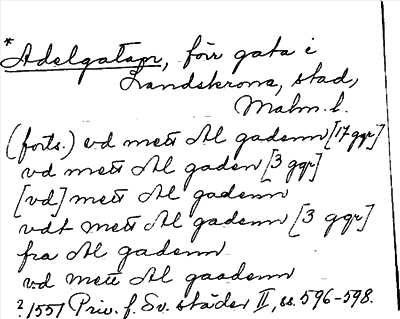 *Adelgatan, förr gata i
Landskrona, stad,
Malm. l.
(forts.) vd mett Al gadenn [17 ggr]
vd mett Al gaden [3 ggr]
[vd] mett Al gadenn
vdt mett Al gadenn [3 ggr]
fra Al gadenn
vd mett Al gaadenn
?/1551 Priv. f. Sv. städer II, ss. 596-598.